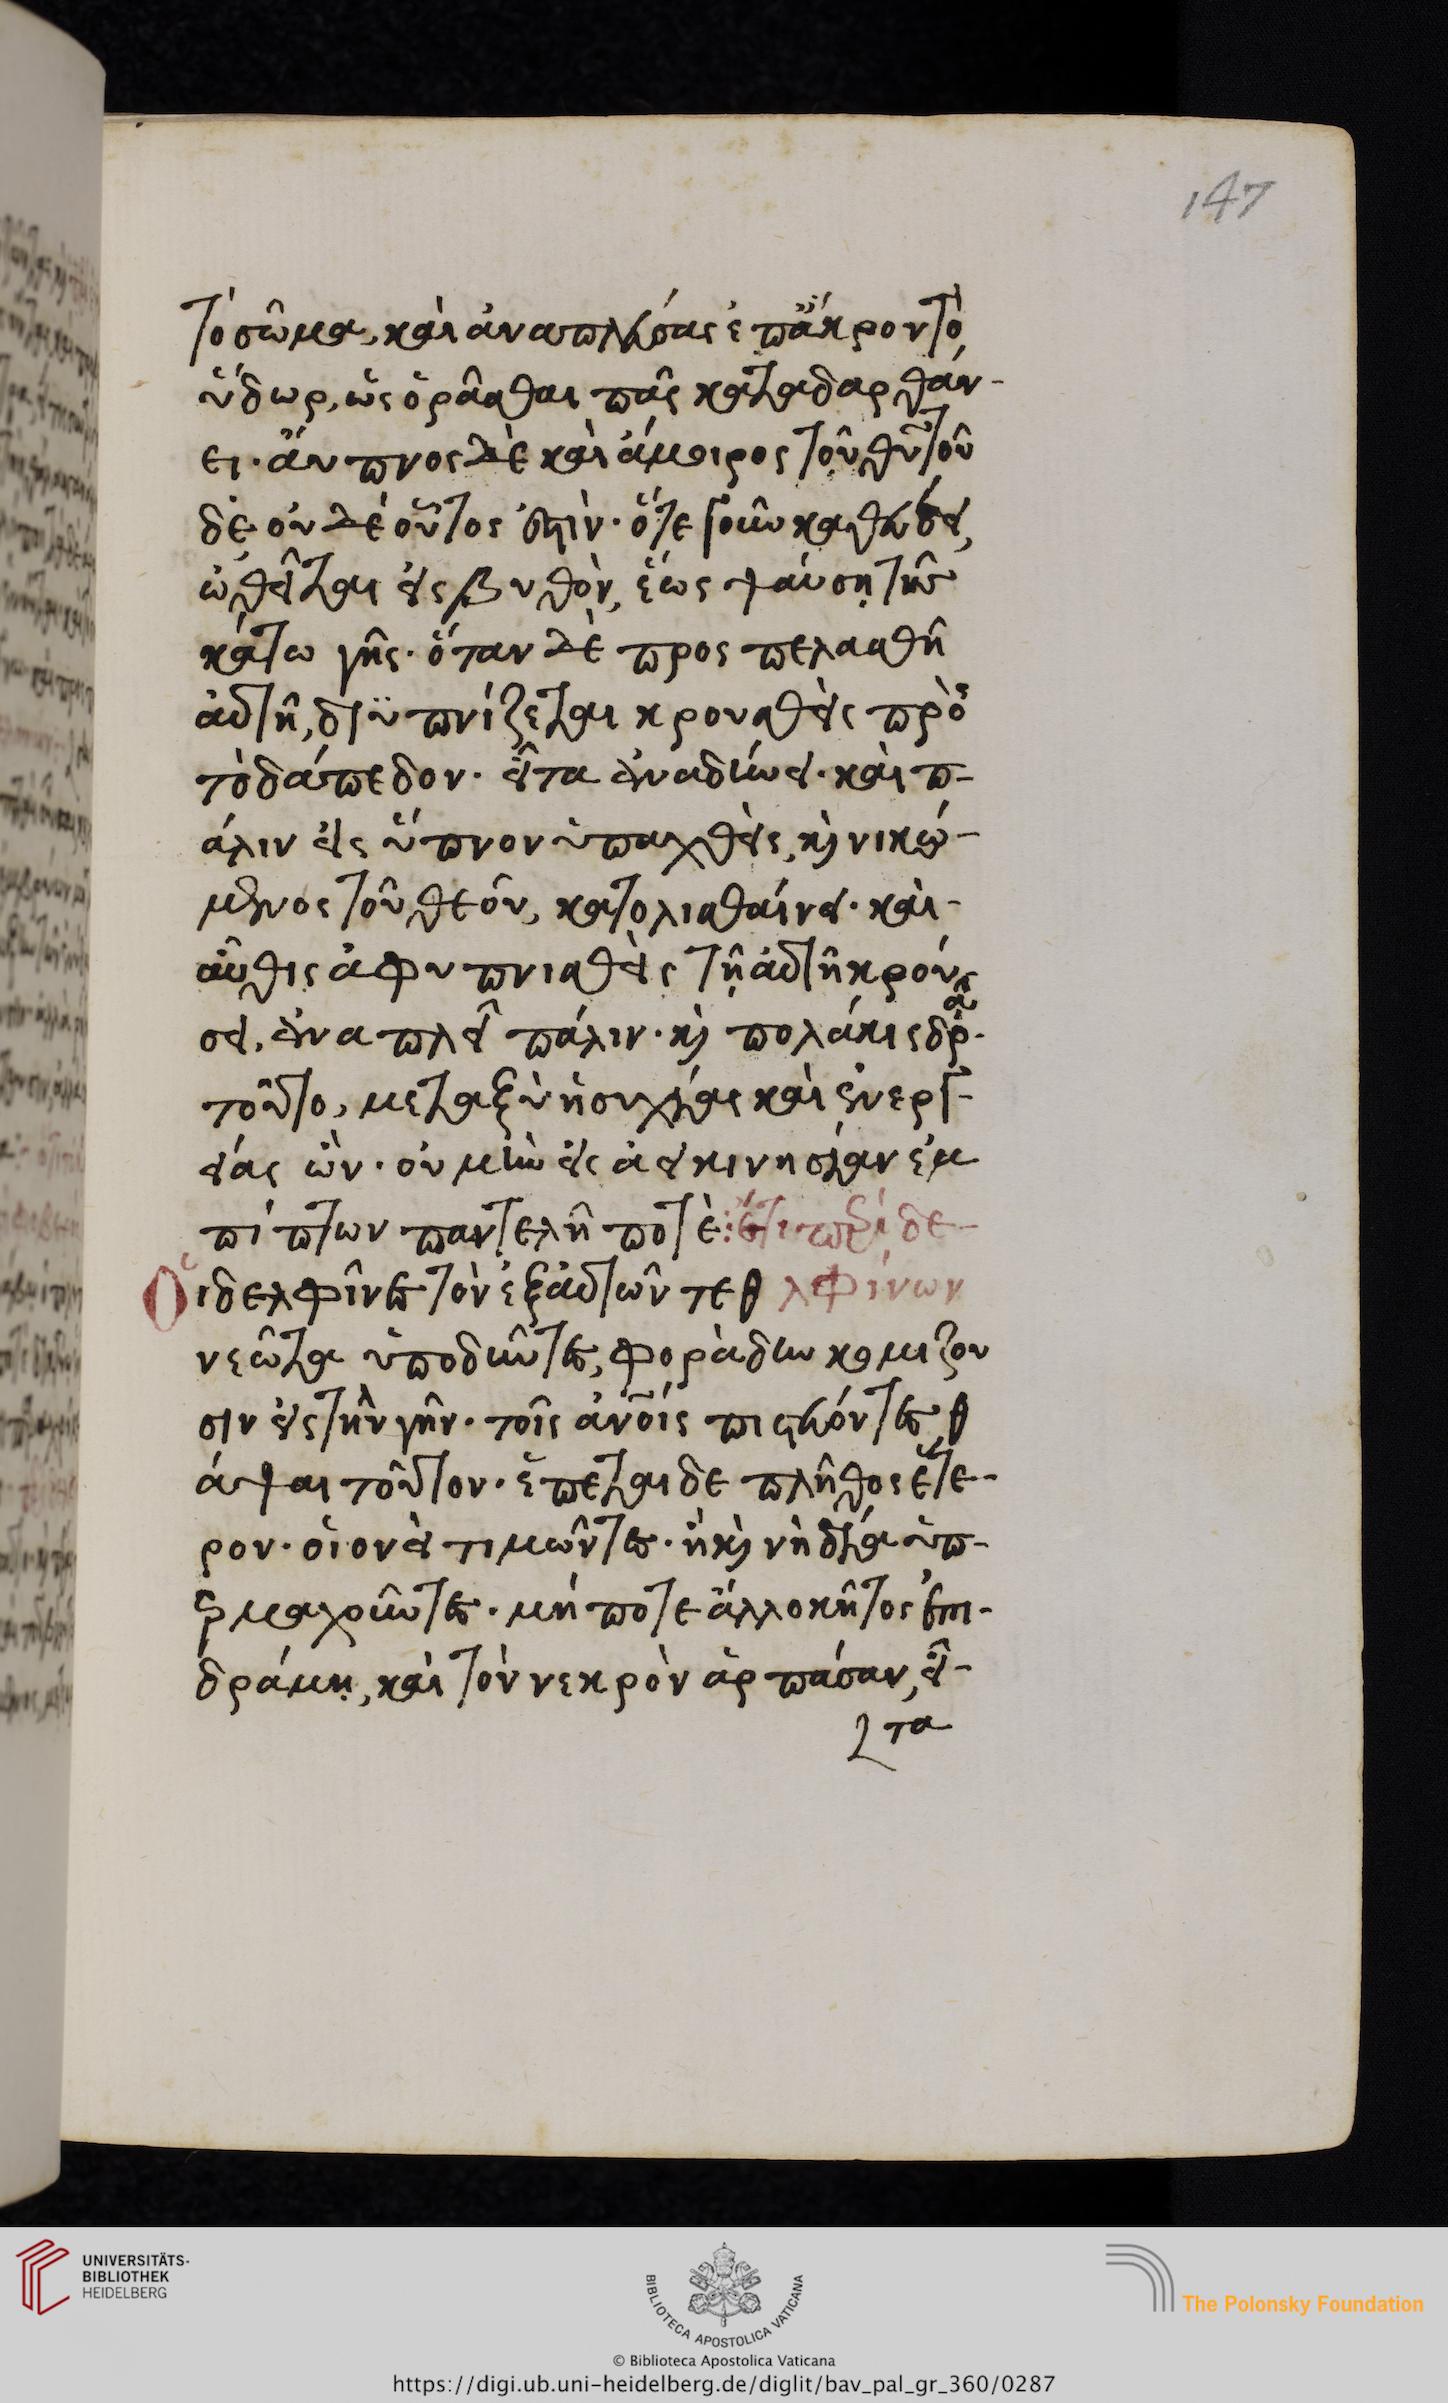 147
τὸ σῶμα, καὶ ἀναπλεύσας ἐπἄκρον τὸ
ὕδωρ, ὡς ὁρᾶσθαι πᾶς καταδαρθάν-
ει. ἄυπνος δὲ καὶ ἄμοιρος τοῦ θῦ τοῦ
δε οὐδὲ οὗτος ἐστὶν. ὅτε γοῦν καθεύδει,
ὠθεῖται εἰς βυθὸν, ἕως ψαύσῃ τῆς
κάτω γῆς. ὅταν δὲ προσπελασθῆ
αὐτῆ, διϋπνίζεται κρουσθεὶς πρὸς
τὸ δάπεδον. εἶτα ἀναδύει. καὶ π-
άλιν εἰς ὕπνον ὑπαχθεὶς, κὶ νικώ-
μενος τοῦ θεοῦ, κατολισθαίνει. καὶ-
αὖθις ἀφυπνισθεὶς τῇ αὐτῆ κρού
σει, ἀναπλεῖ πάλιν. κὶ πολάκις δρᾶ-
τοῦτο, μεταξὺ ἡσυχίας καὶ ἐνεργ-
είας ὢν. οὐ μὴν εἰς ἀεικινησίαν ἐμ
πίπτων παντελῆ ποτὲ: ἔτι περὶ δε-
Οἱ δελφῖνες τὸν ἐξ αὐτῶν τε θ λφίνων
νεῶτα ὑποδῦντες, φοράδην κομιζου
σιν εἰς τὴν γῆν. τοῖς ἀνοις πιστεύοντες θ
άψαι τοῦτον. ἕπεται δε πλῆθος ἕτε-
ρον. οἱονεὶ τιμῶντες. ἢ κὶ νὴ δία ὑπ-
ερμαχοῦντες. μήποτε ἄλλο κῆτος ἐπι-
δράμη, καὶ τὸν νεκρὸν ἁρπάσαν, εἶ-
τα
UNIVERSITÄTS-
BIBLIOTHEK
HEIDELBERG
BIBLIOTECA APOSTOLICA VATICANA
© Biblioteca Apostolica Vaticana
The Polonsky Foundation
https://digi.ub.uni-heidelberg.de/diglit/bav_pal_gr_360/0287